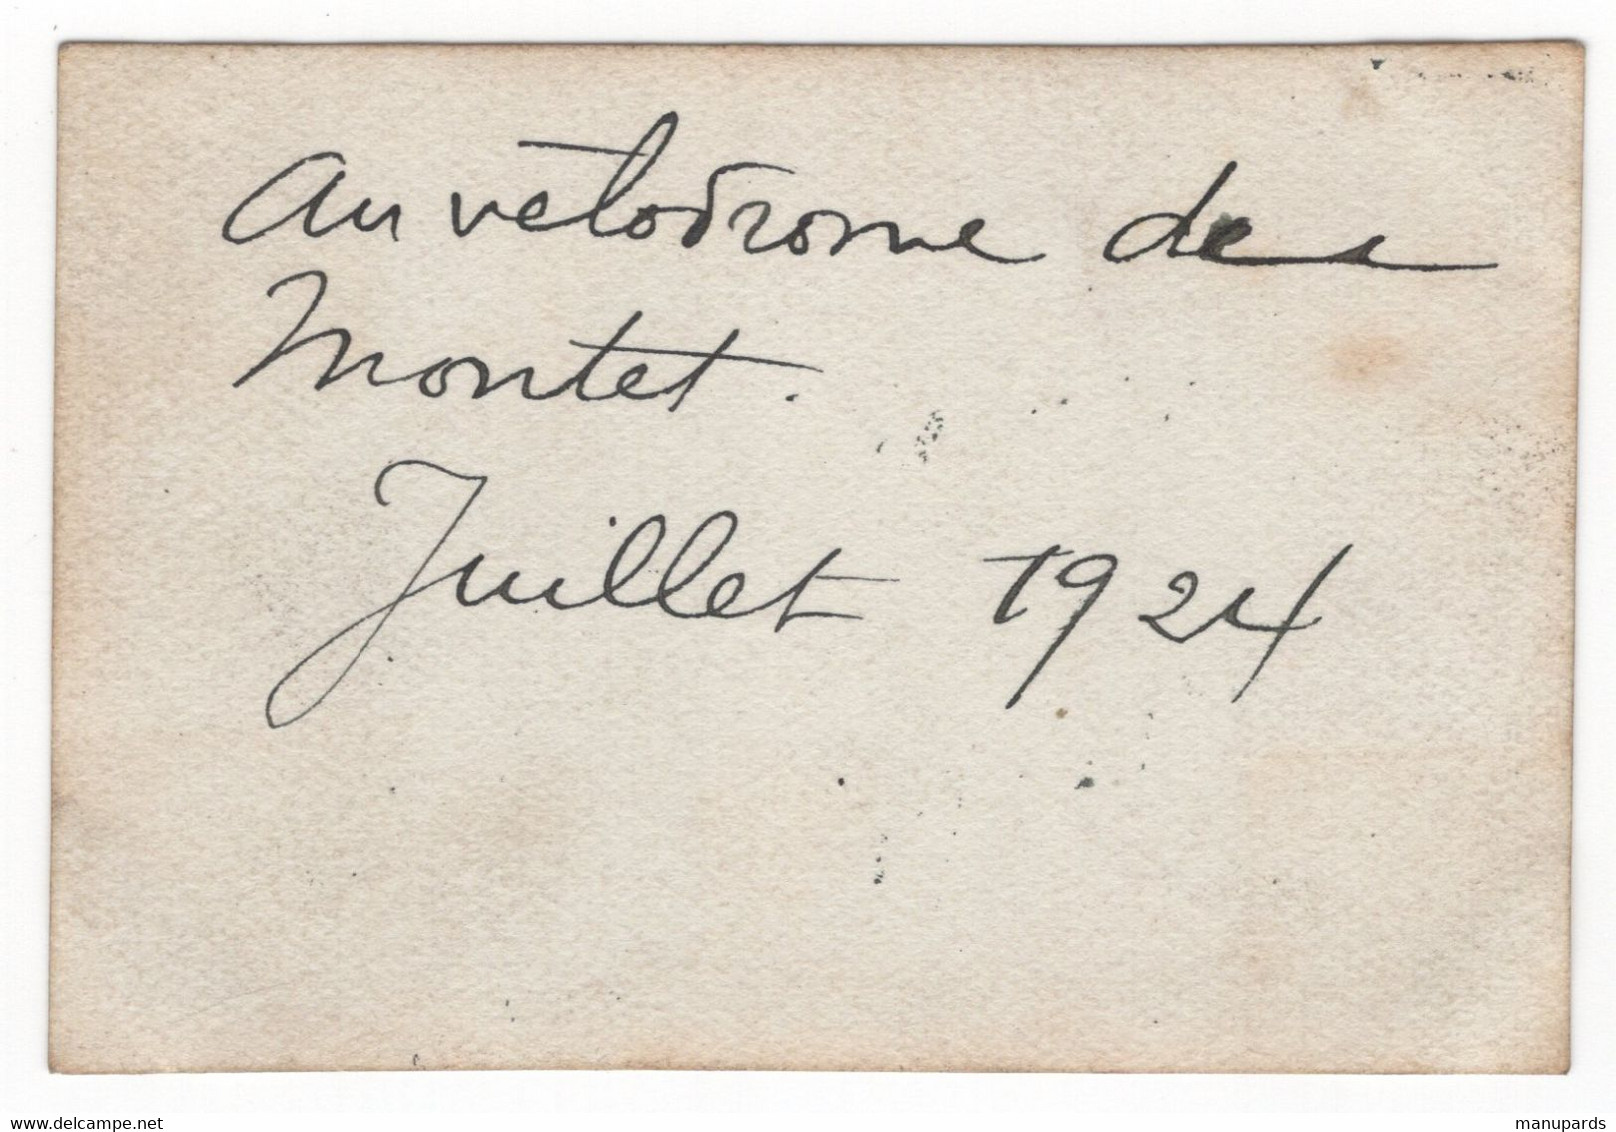 Au vélodrome de
Montet.
Juillet 1924
www.delcampe.net
manupards